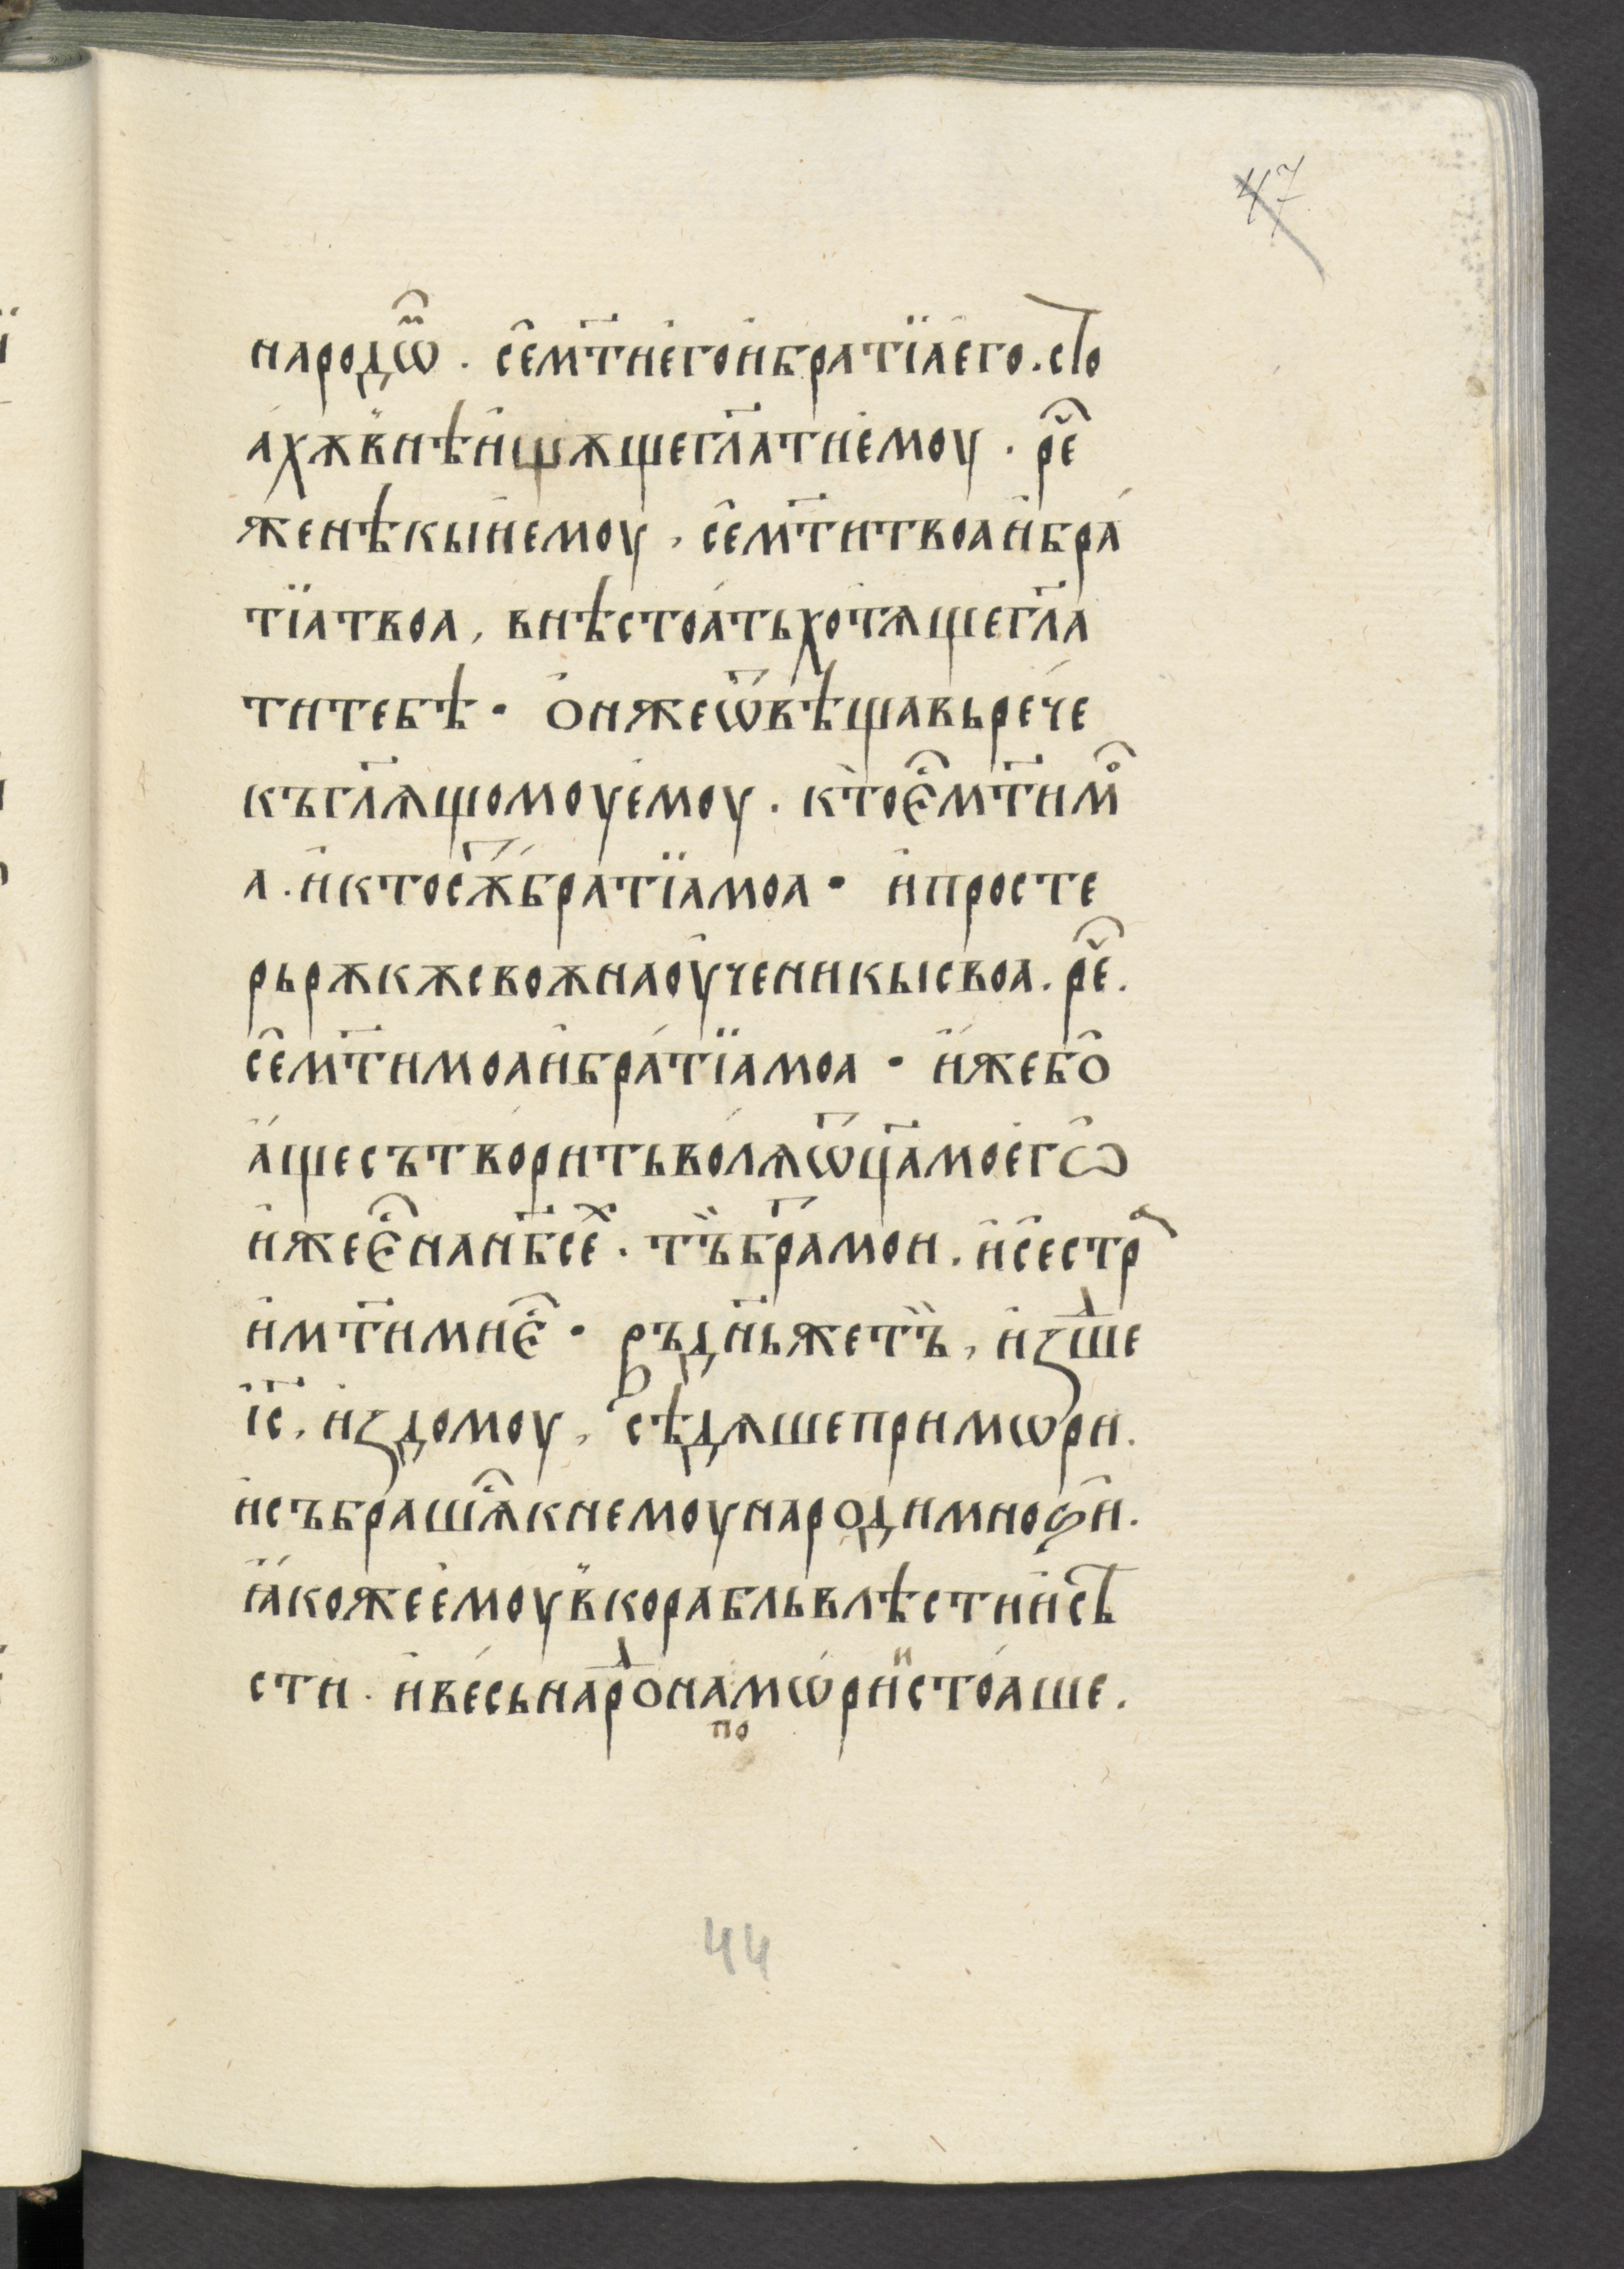 47
народѡⷨ҇ · се́мт҃иего̀ибратїа́его . стⷪ
а́хѫв̾нѣи҆щѫщегл҃атие́моу · реⷱ҇
женѣкыие́моу , се́мт҃итвоаи҆бра́
тїатвоа , внѣстоа́тьхотѧщегл҃а
титебѣ · ѻ҆нжеѿвѣщавьре́че
къгл҃ѧщомоуемоу . кто̀ еⷭ҇мт҃имⷪ
а . и҆ктосѫ́братїамоа · и҆просте
рьрѫкѫсвоѫнаоу҆ченикысвоа . реⷱ҇ .
се́мт҃имоаи҆бра́тїамоа · и҆́жебѻ
а҆́щесътво́ритьво́лѧѿц҃амоегѡ
и҆жееⷭ҇нанб҃сеⷯ . тъ̏бра҃мои . и҆сестрⷶ
и҆мт҃имиеⷭ҇ · въдн҃ьжетъ̏ , и҆зⷣше
і҆с҃ , и҆здомоу , сѣдѧшепримѡри .
и҆събрашѧⷭ҇кнемоународимноѕи .
ꙗ҆́кожеемоув̾корабльвлѣстиис̾ѣ
сти . и҆ве́сьнарⷣонамѡ́риⷩ҇стоа́ше .
по
44